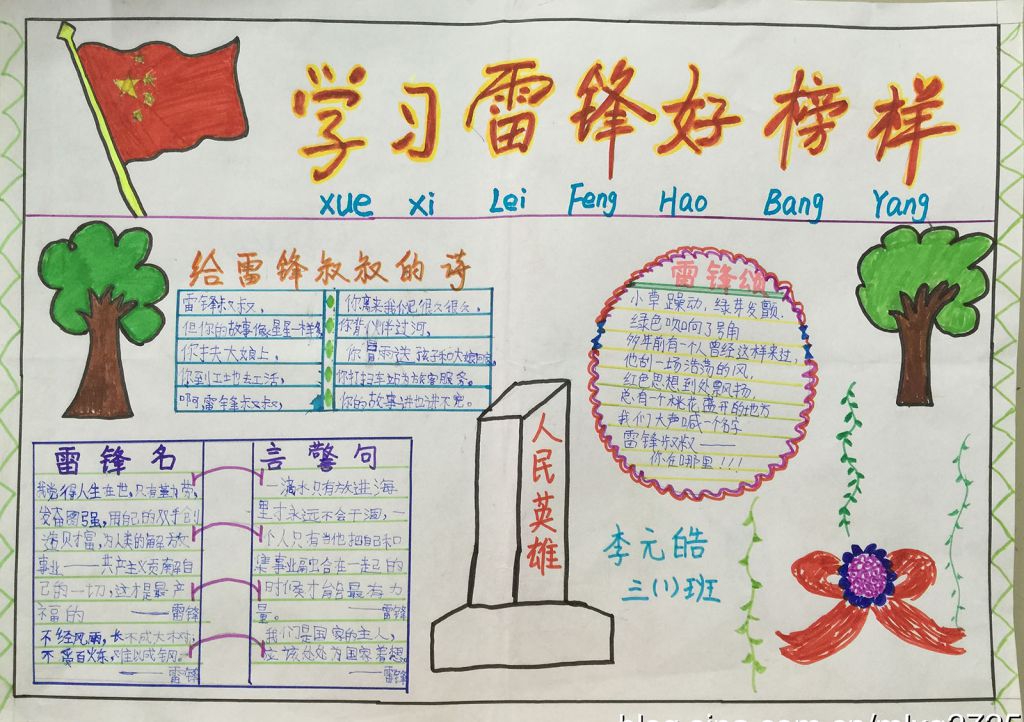 学习雷锋好榜样
xue xi Lei Feng Hao Bang Yang
给雷锋叔叔的诗
雷锋叔叔，
但你的故事像星星一样多
你扶大娘上，
你到工地去工活，
啊，雷锋叔叔，
你离来我们已很久很久，
你背伙伴过河，
你冒雨送孩子和大娘回家
你打扫车站为旅客服务。
你的故事讲也讲不完。
雷锋颂
小草躁动，绿芽发颤.
绿色吹响了号角
多年前有一个人曾经这样来过，
他刮一场浩荡的风，
红色思想到处飘扬，
总有一个桃花盛开的地方
我们大声喊一个名字
雷锋叔叔——
你在哪里!!!
雷锋名言警句
我觉得人生在世，只有勤劳，
发奋图强，用自己的双手创
造财富，为人类的解放
事业——共产主义贡献自
己的一切，这才是最
福的 ——雷锋
不经风雨，长不成大树；
不受百炼，难以成钢。
——雷锋
一滴水只有放进海
里才永远不会干涸，一
个人只有当他把自己和
集事业融合在一起的
时候才能最有力
量。 ——雷锋
我们是国家的主人，
应该处处为国家着想。
——雷锋
人民英雄
李元皓
三(1)班